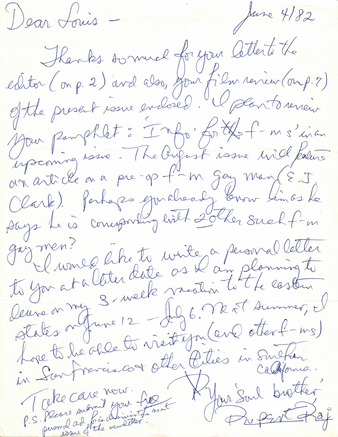 Dear Louis - June 4/82
Thanks so much for your letter to the
editor (on p. 2) and also, your film review (on p. 7)
of the present issue enclosed. I plan to review
your pamphlet: 'Info for f-m s' in an
upcoming issue. The August issue will feature
an article on a pre-op f-m gay man (E.J
Clark) Perhaps you already know him as he
says he is corresponding with 2 other such f-m
gay men?
I would like to write a personal letter
to you at a later date as I am planning to
leave on my 3-week vacation to the eastern
states on June 12 - July 6. Next summer, I
hope to be able to visit you (and other f-ms)
in San Francisco & other Cities in
California.
Take care now.
Your 'Soul brother',
Rupert Raj
P.S. Please submit your free
personal ad for next
issue of the newsletter.